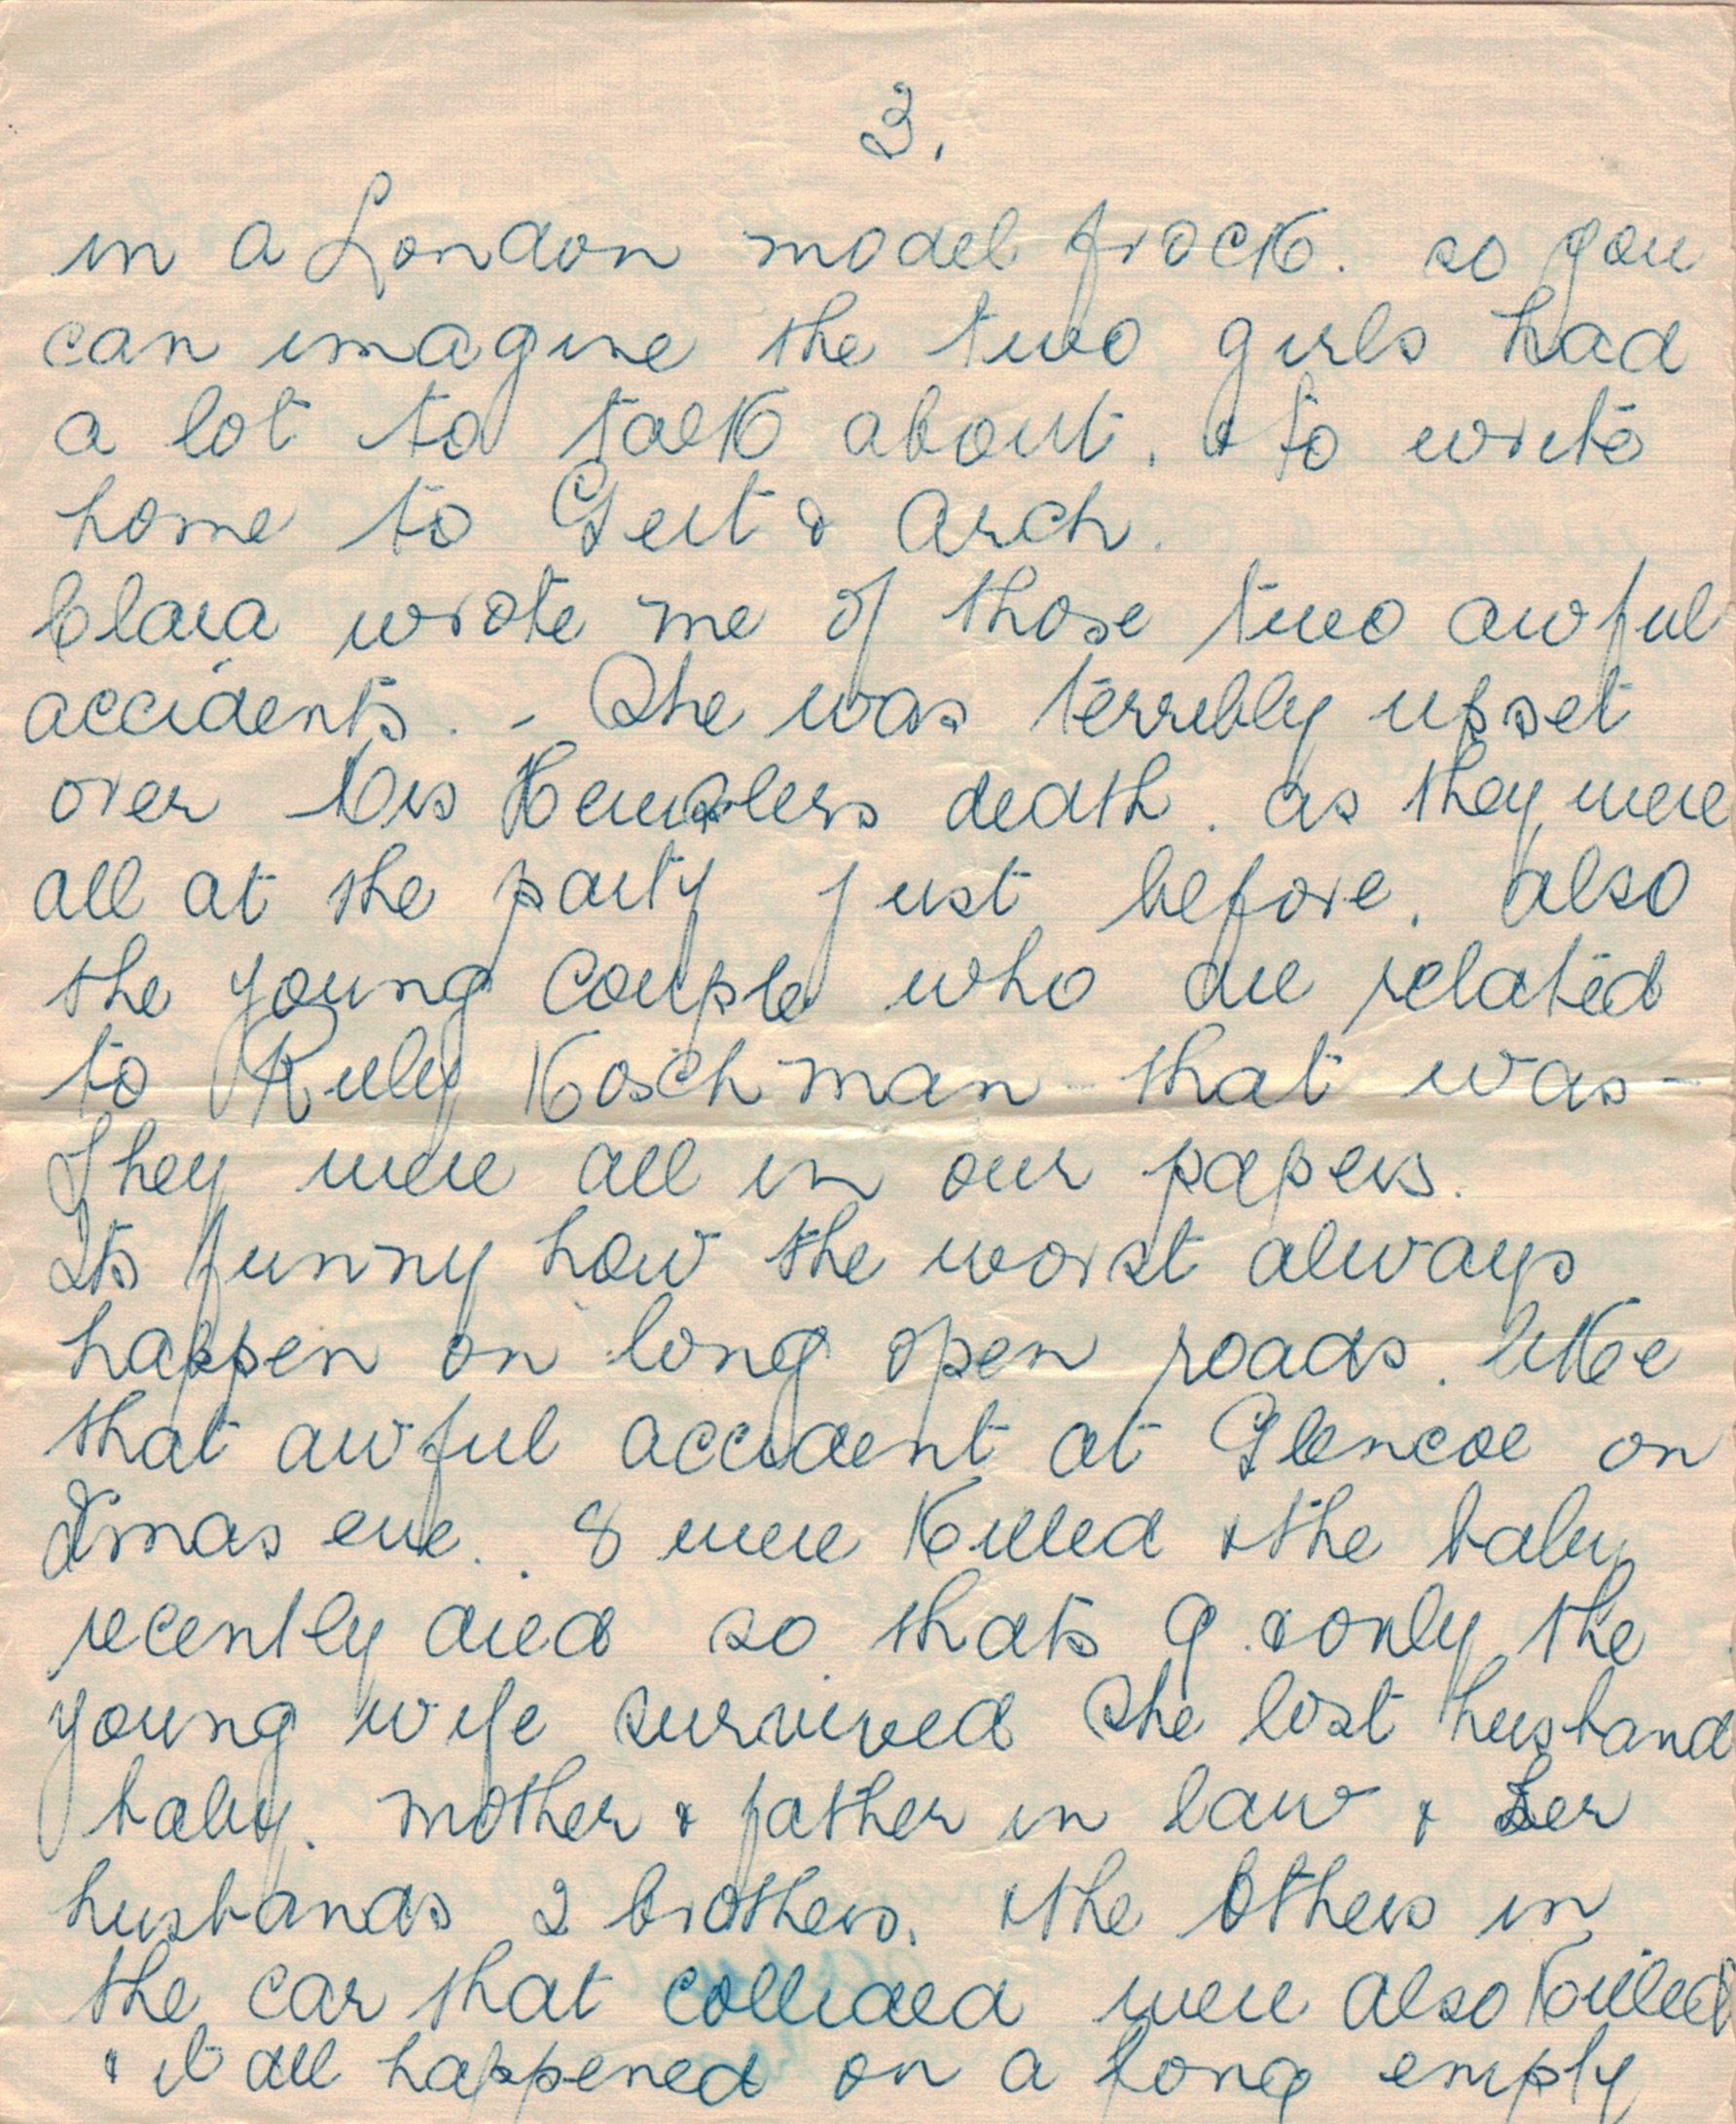 3.
in a London model frock. so you
can imagine the two girls had
a lot to talk about. & to write
home to Gert & Arch.
Clara wrote me of those two awful
accidents. - She was terribly upset
over death. as they were
all at the party just before. also
the young couple who are related
to Ruby Koschman - that was -
They were all in our papers.
Its funny how the worst always
happen on long open roads. like
that awful accident at Glencoe on
Xmas eve. 8 were killed & the baby
recently died so thats 9. & only the
young wife survived She lost husband
baby. mother & father in law & her
husbands 2 brothers. & the others in
the car that collided were also killed
& it all happened on a long empty